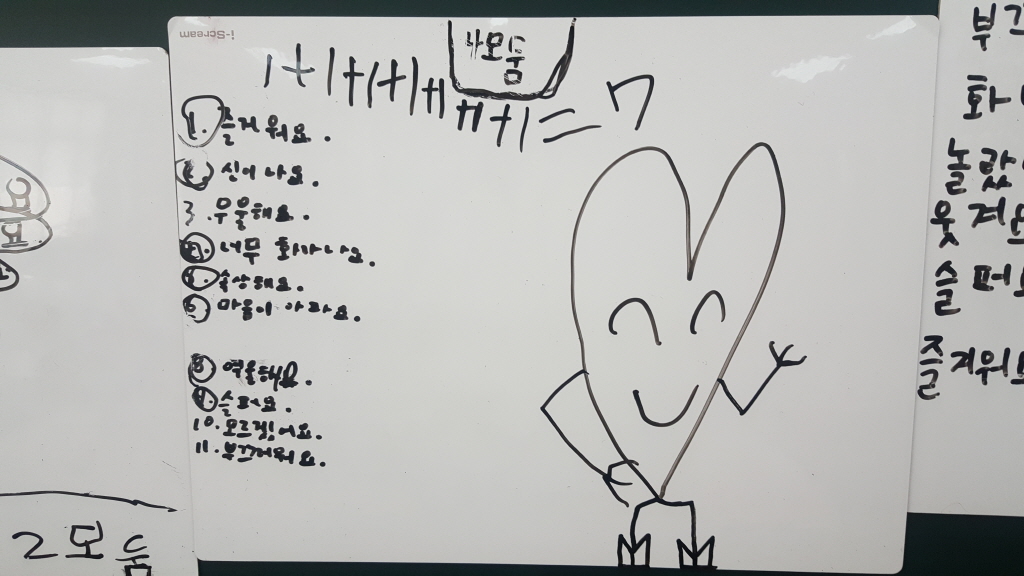 i-Scream
4모둠
1+1+1+1+1+1+1=7
1. 즐거워요.
2. 신이 나요.
3. 우울해요.
4. 너무 화가 나요.
5. 속상해요.
6. 마음이 아파요.
8. 억울해요.
9. 슬퍼요.
10. 모르겠어요.
11. 부끄러워요.
2모둠
부끄
화
놀랐
웃겨요
슬퍼
즐거워